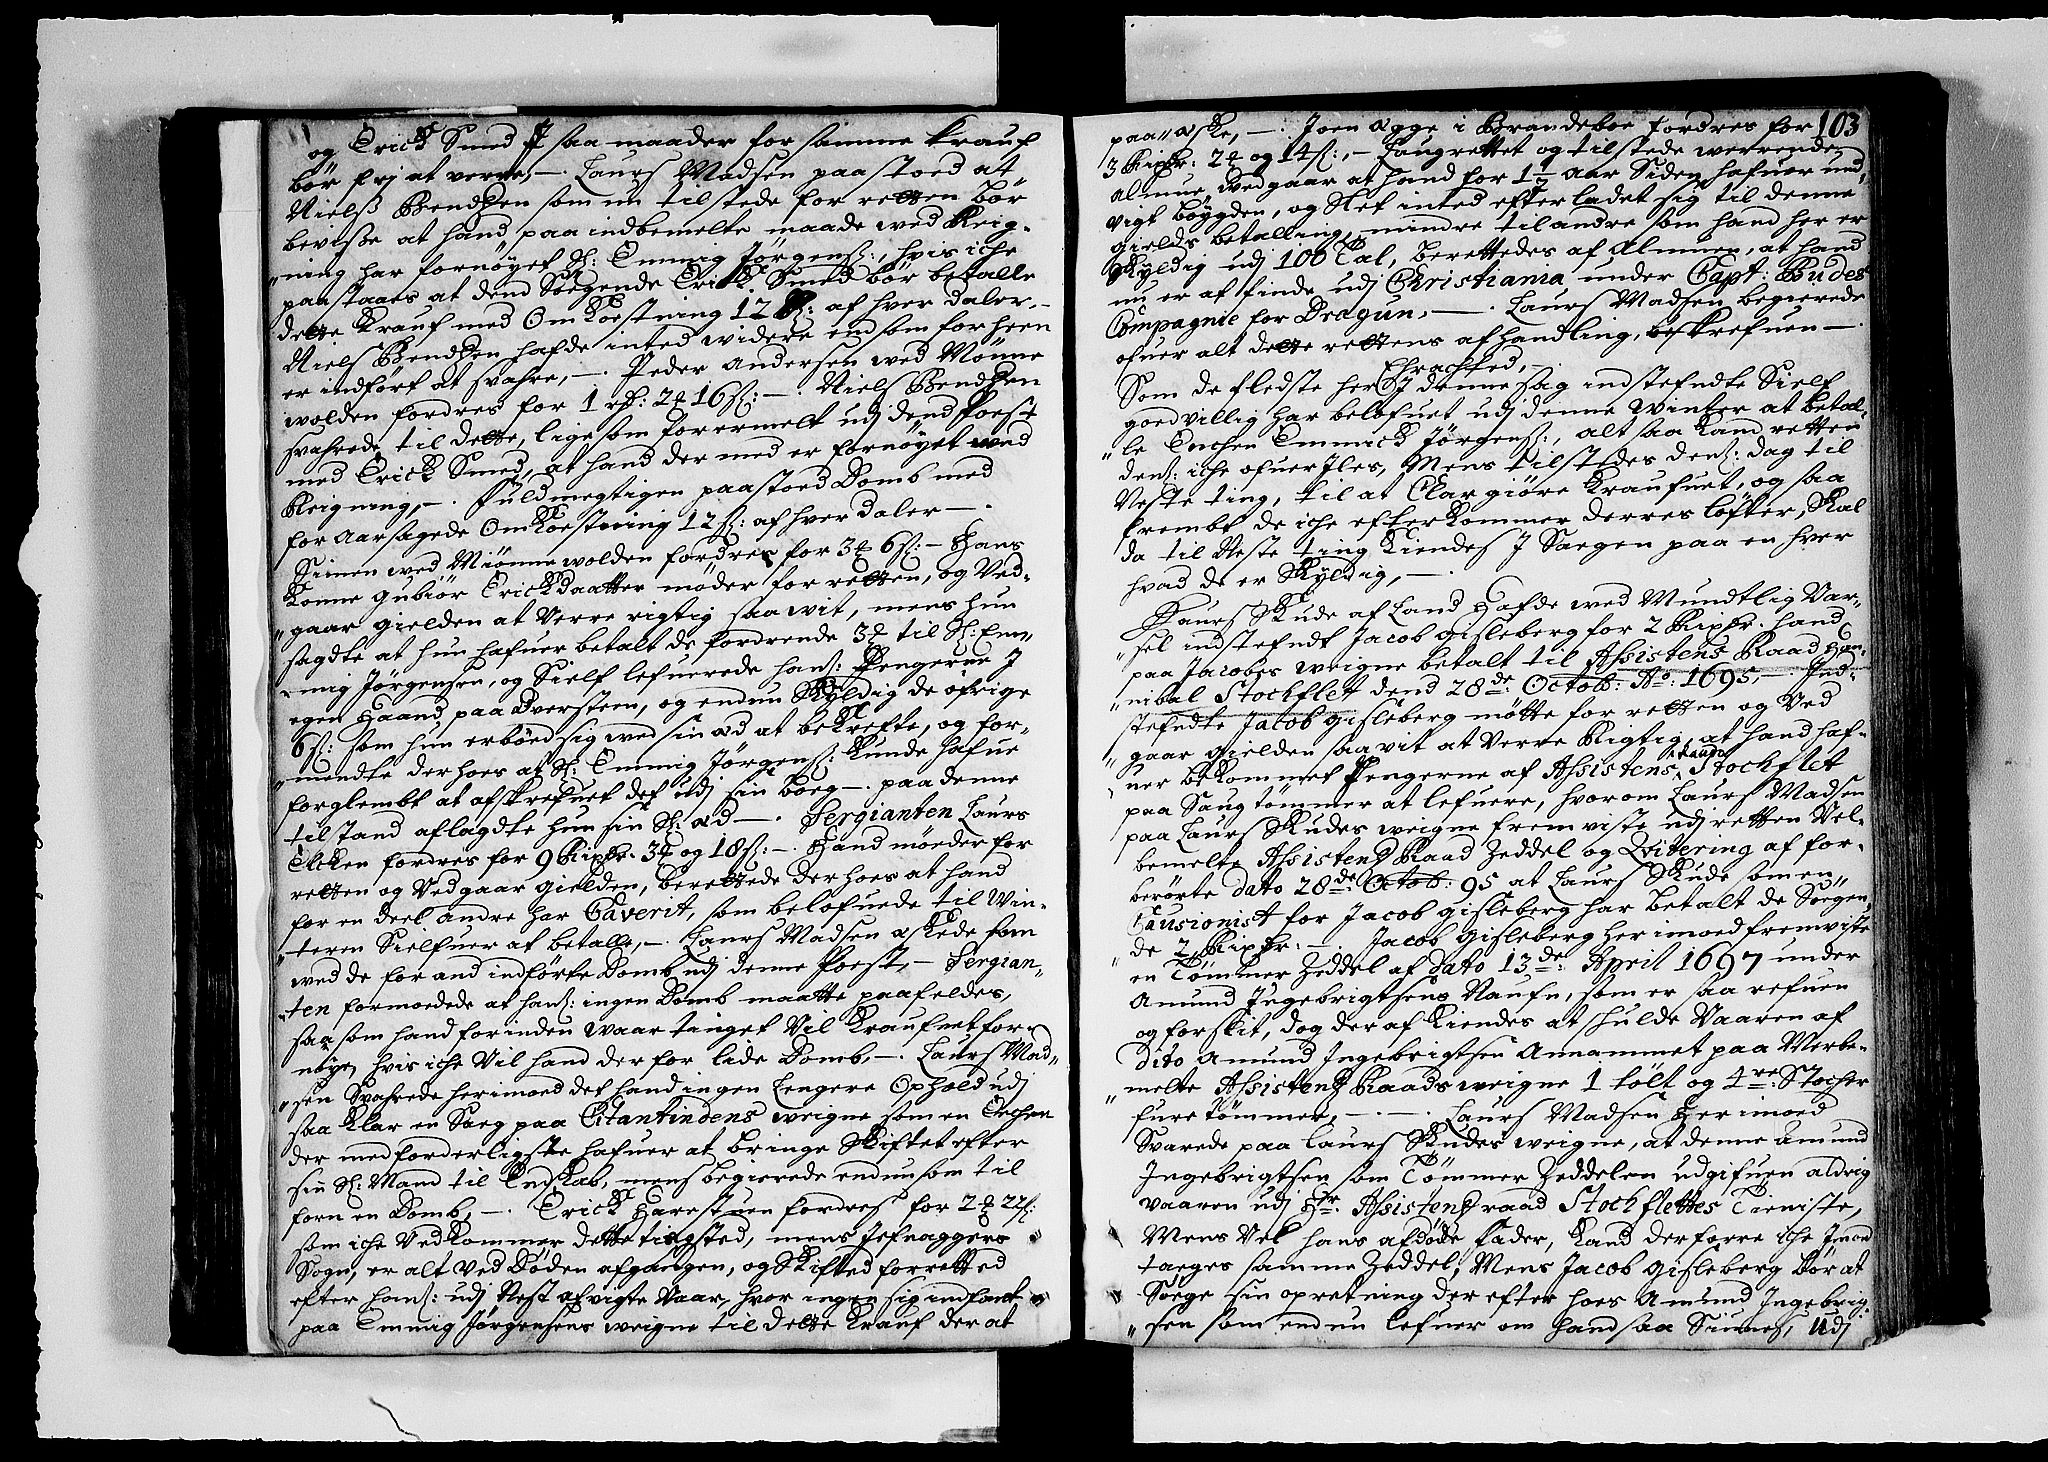 og Erich Smed J saa maader for samme krauf
bør frj at verre, —. Laurs Madsen paastoed at
Nielss Bendtzen som nu tilstede for retten bør
bevisse at hand paa indbemelte maade wed Reig-
"ning har fornøyet Sl: Emmig Jørgens:, hvis iche
paastaaes at dend Søgende Erich Smed bør betalle
dette Krauf med Omkostning 12 s: af hver daler. –
Niels Bendtzen hafde inted widere end som forheen
er indført at svahre, —. Peder Andersen wed Mønne
wolden fordres for 1 rd: 2 16 s: —. Niels Bendtzen
svahrede til dette, ligesom formelt udj dend Poest
med Erich Smed, at hand der med er fornøyet wed
Reigning, —. Fuldmegtigen paastoed Domb med
foraarsagede Omkostning 12 s: af hver daler —.
Simen wed Miønnewolden fordres for 3 6 s: – Hans
Konne Gubiør Erichsdaatter møder for retten, og Ved-
"gaar gielden at Verre rigtig saa wit, mens hun
sagdte at hun hafuer betalt de fordrende 3 til Sl: Em-
"mig Jørgensen, og Sielf lefuerede hans: Pengerne J
egen Haand paa Dversteen, og endnu Skyldig de øfrige
6 s: som hun erbøed sig wed sin æd at bekrefte, og for-
"mendte derhoes at Sl: Emmig Jørgens: kunde hafue
forglembt at afskrefuet det udj sin boeg —. paa denne
tilstand aflagdte hun sin Sl: æd —. Sergianten Laurs
Elken fordres for 9 Rixdr. 3 og 18 s: —. Hand møeder for
retten og Vedgaar gielden, berettede derhoes at hand
for en deel andre har Caverit, som belofuede til Win-
"teren Sielfuer at betalle, —. Laurs Madsen æskede som
wed de forrand indførte Domb udj denne Poest, – Sergian-
"ten formoedede at hans: ingen Domb maatte paafeldes,
saasom hand forinden waartinget Vil Kraufuet for-
nøye, hvis iche Vil hand derfor lide Domb, —. Laurs Mad-
"sen Svahrede herimoed det hand ingen Lengere Ophold udj
saa Klar en Sag paa Citantindens weigne som en Enchen
der med forderligste hafuer at bringe Skiftet efter
sin Sl: Mand til Endskab, mens begierede endnu som til
forn en Domb, —. Erich Harestuen fordres for 2 22 s:
som iche Vedkommer dette tingsted, mens Jefnaggers
Sogn, er alt Ved Døden afgangen, og Skifted forretted
efter hans: udj Nest afvigte Vaar, hvor ingen sig indfant
paa Emmig Jørgensens weigne til dette Krauf der at
103
paa æske, —. Joen Agge i Brandeboe fordres for
3 Rixdr: 2 og 14 s:, – Laugrettet og tilstede werrende
almue Vedgaar at hand for 1½ Aar Siden hafuer und-
vigt bøygden, og Slet inted efterladet sig til denne
gields betalling, mindre til andre som hand her er
Skyldig udj 100 Tal, berettedes af Almuen, at hand
nu er at finde udj Christiania under Capt: Budes
Compagnie for Dragun, —. Laurs Madsen begierede
ofuer alt dette rettens afhandling, beskrefuen —.
Eragted, –
Som de fledste her J denne sag indstefndte Sielf
goedvillig har belofuet udj denne Winter at betal-
"le Enchen Emmich Jørgens:, alt saa kand retten
dens: iche ofueriles, Mens tilstedes dens: dag til
Neste ting, til at Clargiøre Kraufuet, og saa
frembt de iche efterkommer derres løfter, Skal
da til Neste ting Kiendes J Saegen paa en hver
hvad de er Skyldig, —.
Laurs Skude af Land Hafde wed Mundtlig Var-
"sel indstefndt Jacob Gisleberg for 2 Rixdr. hand
paa Jacobs weigne betalt til Assistens Raad Han-
"nibal Stochflet dend 28de: Octob: Ao: 1695, —. Ind-
stefndte Jacob Gisleberg møtte for retten og Ved
"gaar gielden saavit at Verre Rigtig, at hand haf-
"uer bekommet Pengerne af Assistens Raad Stochflet
paa Saugtømmer at lefuere, hvorom Laurs Madsen
paa Laurs Skudes weigne fremviste udj retten Vel-
bemelte Assistens Raad Zeddel og Qvitering af for-
berørte dato 28de: Octob: 95 at Laurs Skude som en
Causionist for Jacob Gisleberg har betalt de Søgen-
"de 2 Rixdr: —. Jacob Gisleberg herimoed fremviste
en Tømmer Zeddel af dato 13de: April 1697 under
Amund Ingebrigtsens Naufn, som er saa refuen
og forslit, dog deraf Kiendes at Skulde Vaaren af
dito Amund Ingebrigtsen Annammet paa Merbe-
"melte Assistens Raads weigne 1 tølt og 4re: Stocher
furetømmer, —. —. Laurs Madsen Herimoed
Svarede paa Laurs Skudes weigne, at denne Amund
Ingebrigtsen som Tømmer Zeddelen udgifuen aldrig
vaaren udj Hr. Assistens raad Stochflettes Tieniste,
Mens Vel hans afdøde Fader, Kand derforre iche Jmod
taeges samme Zeddel, Mens Jacob Gisleberg bør at
Søege sin opretning derefter hoes Amund Ingebrig-
"sen som endnu lefuer om hand saa Siunes, udj